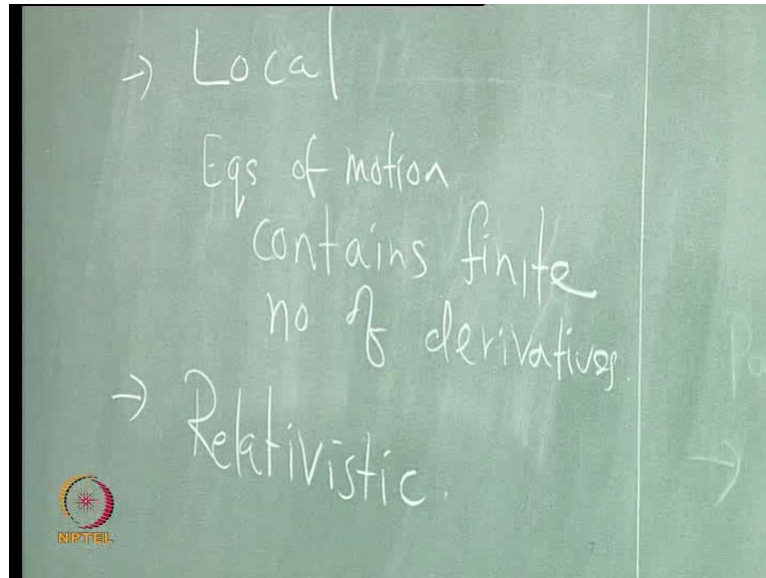 → Local
Eqs of motion
contains finite
no of derivatives.
→ Relativistic.
→
NPTEL